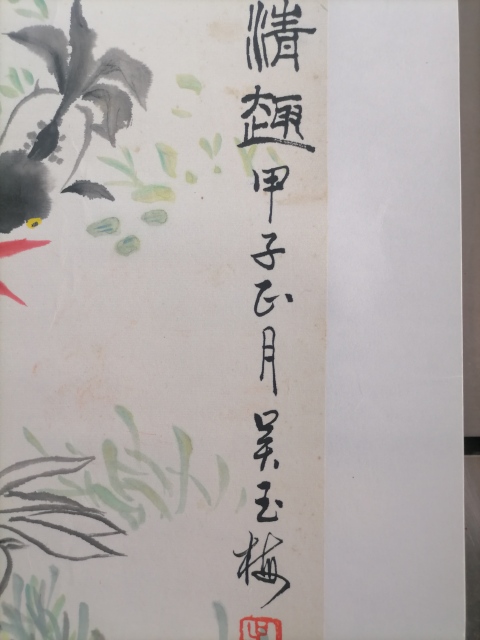 清趣甲子正月吴玉梅